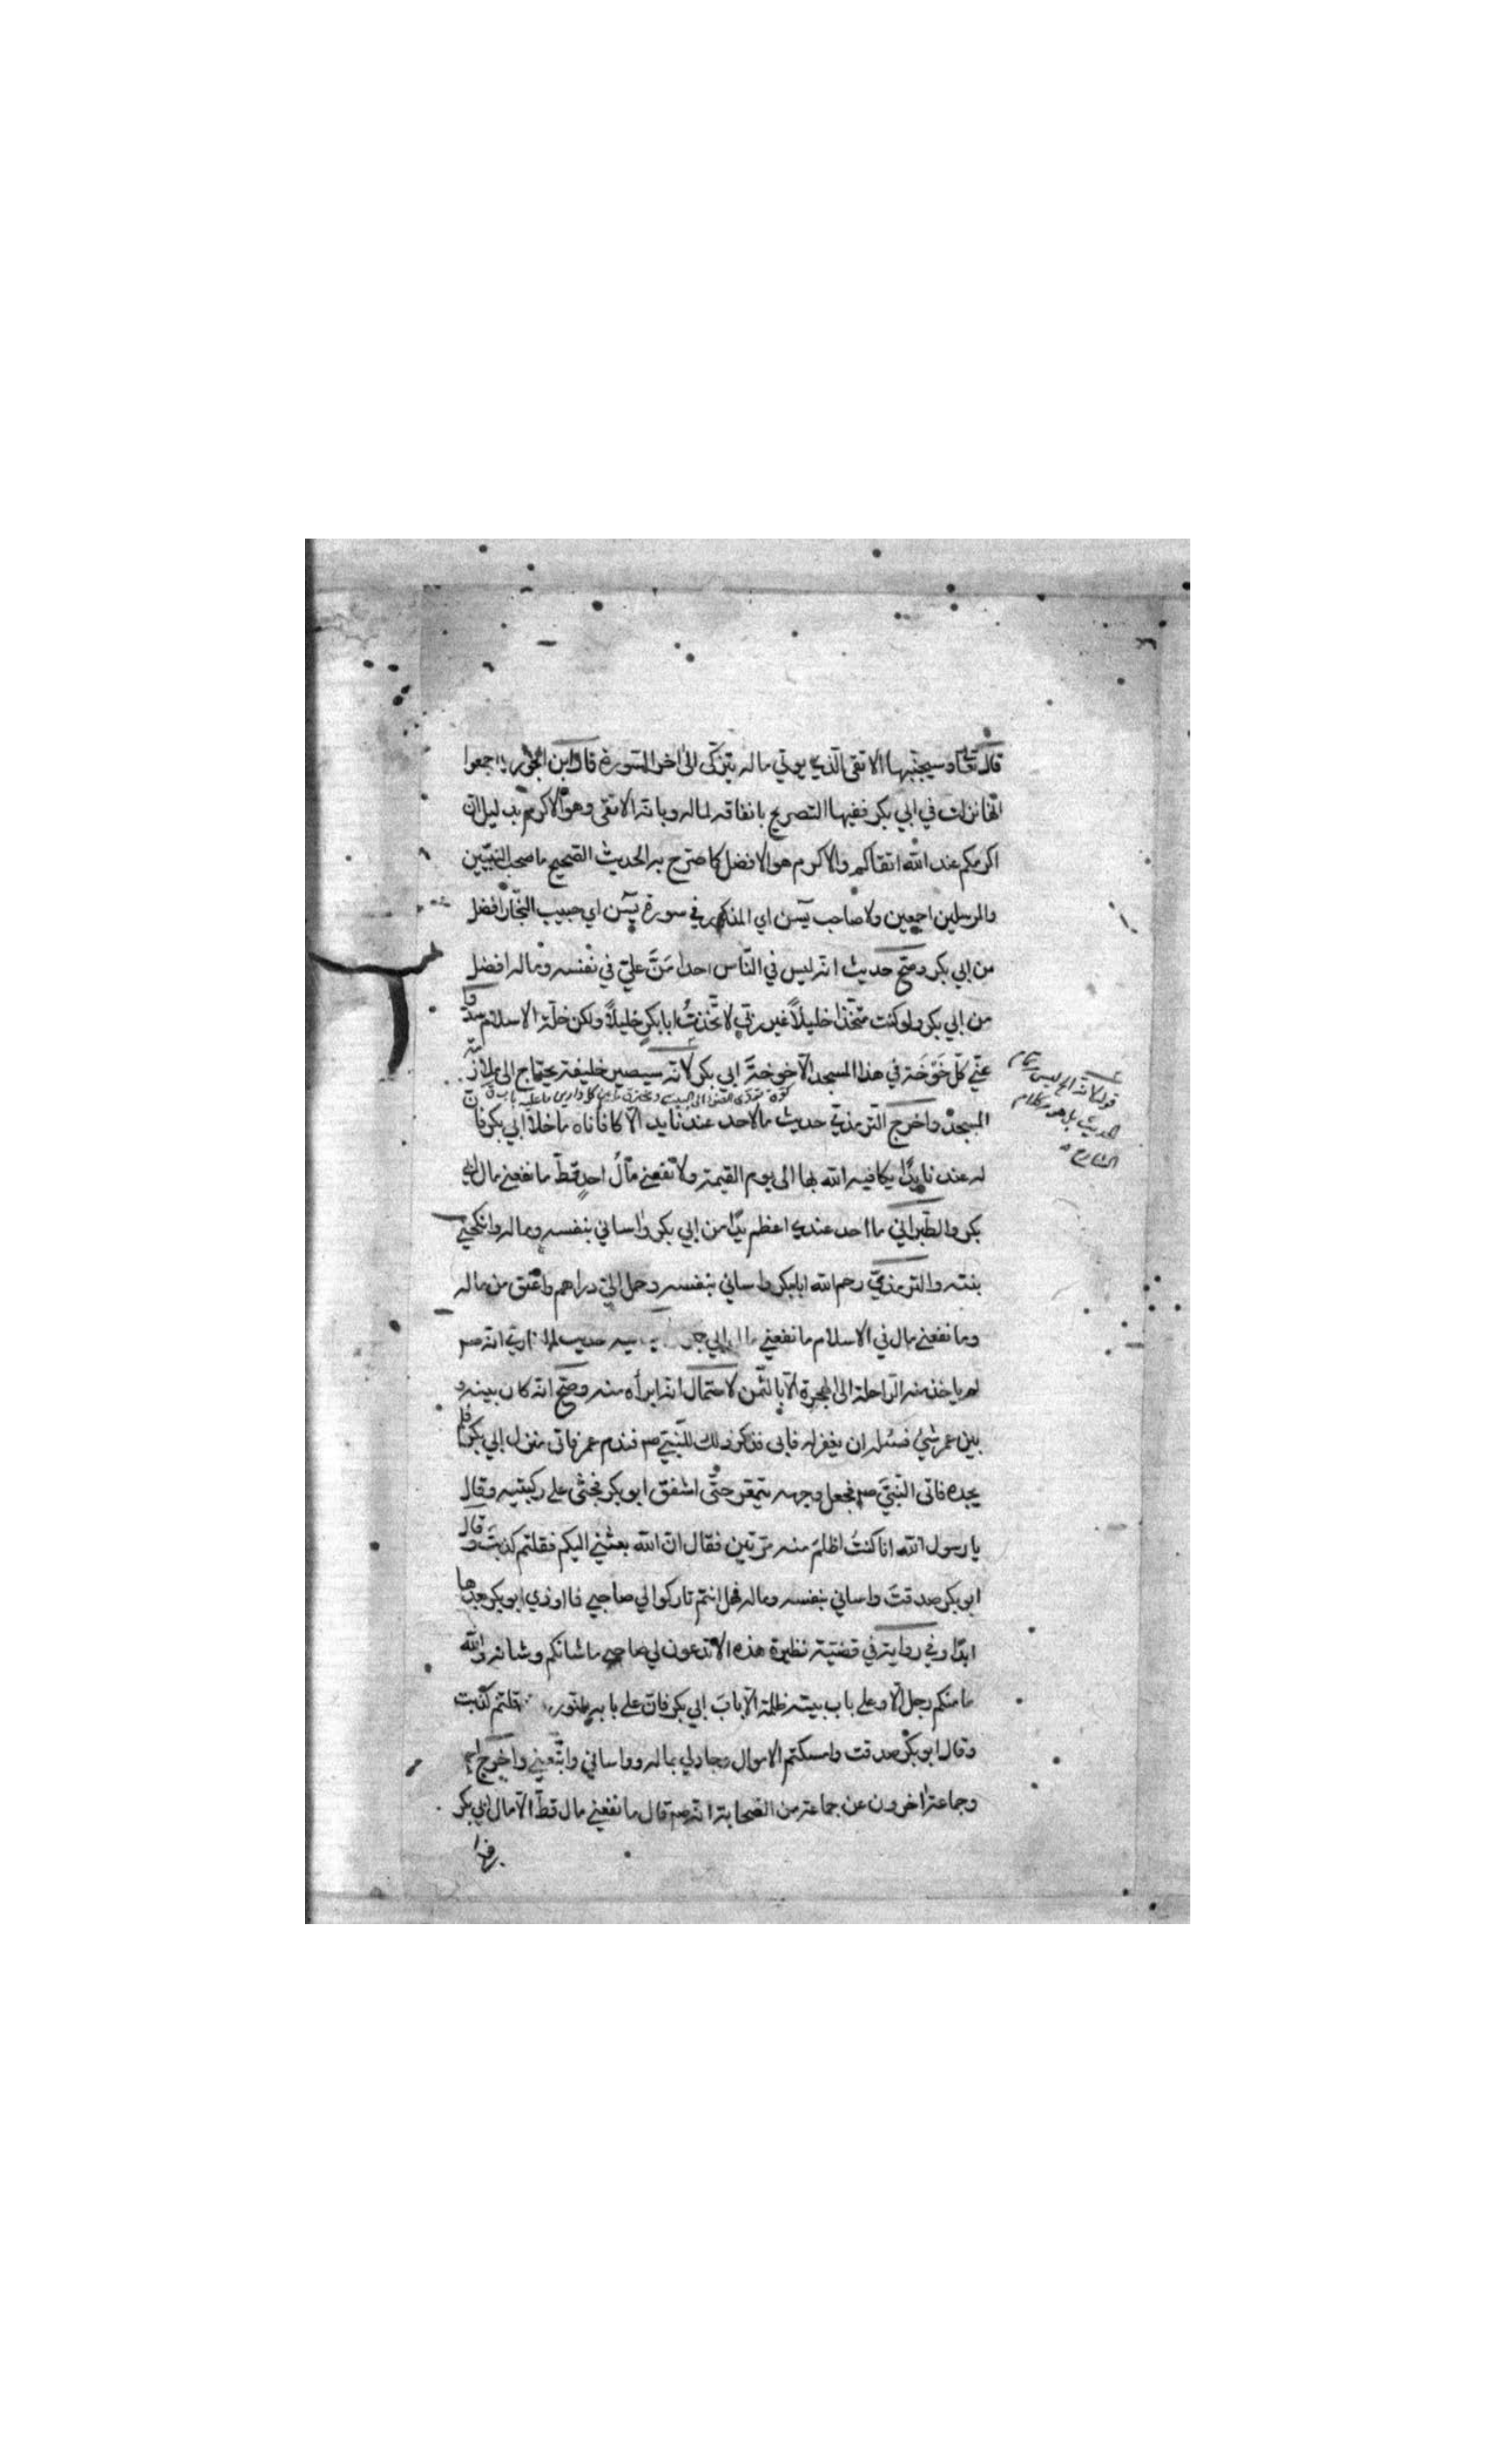 قال تعالى وسيجنبها الاتقى الذي يوتي ماله يتزكى الى اخر السورة قال ابن الجوزي اجمعوا
انها نزلت في ابي بكر ففيها التصريح بانفاقه لماله وبانه الاتقى وهو الاكرم بدليل ان
اكرمكم عند الله اتقاكم والاكرم هو الافضل كما صرح به الحديث الصحيح ما صحب النبيين
والمرسلين اجمعين ولا صاحب يٓسن اي المذكور في سورة يٓسن اي حبيب النجار افضل
من ابي بكر وصحّ حديث انه ليس في النّاس احدا مَنَّ عليّ في نفسه وماله افضل
من ابي بكر ولو كنت متّخذا خليلاً غير ربّي لاتّخذتُ ابا بكرٍ خليلاً ولكن خلّة الاسلام
عنّي كلّ خَوْخَة في هذا المسجد الّا خوخةَ ابي بكر لانّه سيصير خليفة يحتاج الى ملازمة
المسجد واخرج الترمذي حديث ما لاحد عندنا يد الّا كافاناه ما خلا ابي بكر فان
له عندنا يدًا يكافيه الله بها الى يوم القيمة ولا نفعني مالُ احدٍ قطّ ما نفعني مال ابي
بكر والطبراني ما احد عندي اعظم يدًا من ابي بكر واساني بنفسه وماله وانكحني
بنته والترمذيّ رحم الله ابا بكر واساني بنفسه وحمل اليّ دراهم واعتق من ماله
وما نفعني مال في الاسلام ما نفعني ابي حديث البخاري انه صم
لم ياخذ منه الراحلة الى الهجرة الّا بالثّمن لاحتمال انه ابرأه منه وصحّ انه كان بينه و
بين عمر شيٌ فسئله ان يغفر له فابى فذكر ذلك للنّبيّ صم فندم عمر فاتى منزل ابي بكر فلم
يجده فاتى النّبيّ صم فجعل وجهه يتمعّر حتّى اشفق ابو بكر فجثى على ركبتيه وقال
يا رسول الله انا كنتُ اظلم منه مرّتين فقال انّ الله بعثني اليكم فقلتم كذبتَ وقال
ابو بكر صدقتَ واساني بنفسه وماله فهل انتم تاركوا لي صاحبي فما اوذي ابو بكر بعدها
ابدًا وفي رواية في قضيّة نظيرة هذه الا تدعون لي صاحبي ما شانكم وشانه والله
ما منكم رجل الّا وعلى باب بيته ظلمة الّا بابَ ابي بكر فان على بابه قلتم كذبت
وقال ابو بكر صدقت وامسكتم الاموال وجاد لي بماله وواساني واتّبعني واخرج
وجماعة اخرون عن جماعة من الصّحابة انّه صم قال ما نفعني مال قطّ الّا مال ابي بكر
قوله لانه الى ليس بتمام
الحديث بل هو من كلام
الشارح